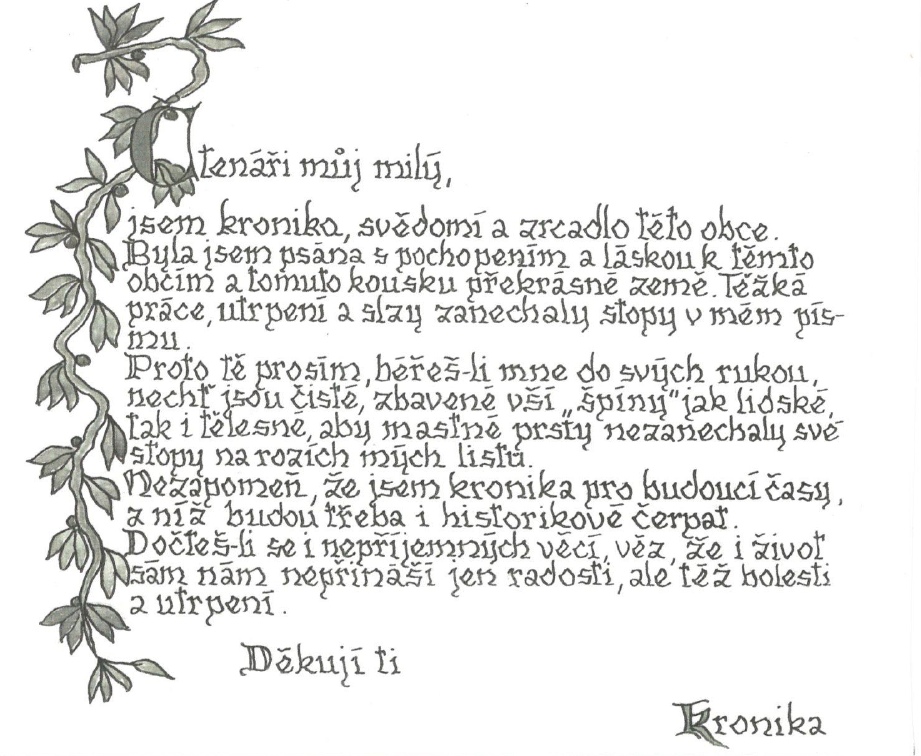 Čtenáři můj milý,
jsem kronika, svědomí a zrcadlo této obce.
Byla jsem psána s pochopením a láskou k těmto
občím a tomuto kousku překrásné země. Těžká
práce, utrpení a slzy zanechaly stopy v mém pís-
mu.
Proto tě prosím, béřeš-li mne do svých rukou,
nechť jsou čisté, zbavené vší „špíny" jak lidské,
tak i tělesné, aby mastné prsty nezanechaly své
stopy na rozích mých listů.
Nezapomeň, že jsem kronika pro budoucí časy,
z níž budou třeba i historikové čerpat.
Dočteš-li se i nepříjemných věcí, věz, že i život
sám nám nepřináší jen radosti, ale též bolesti
a utrpení.
Děkuji ti
Kronika